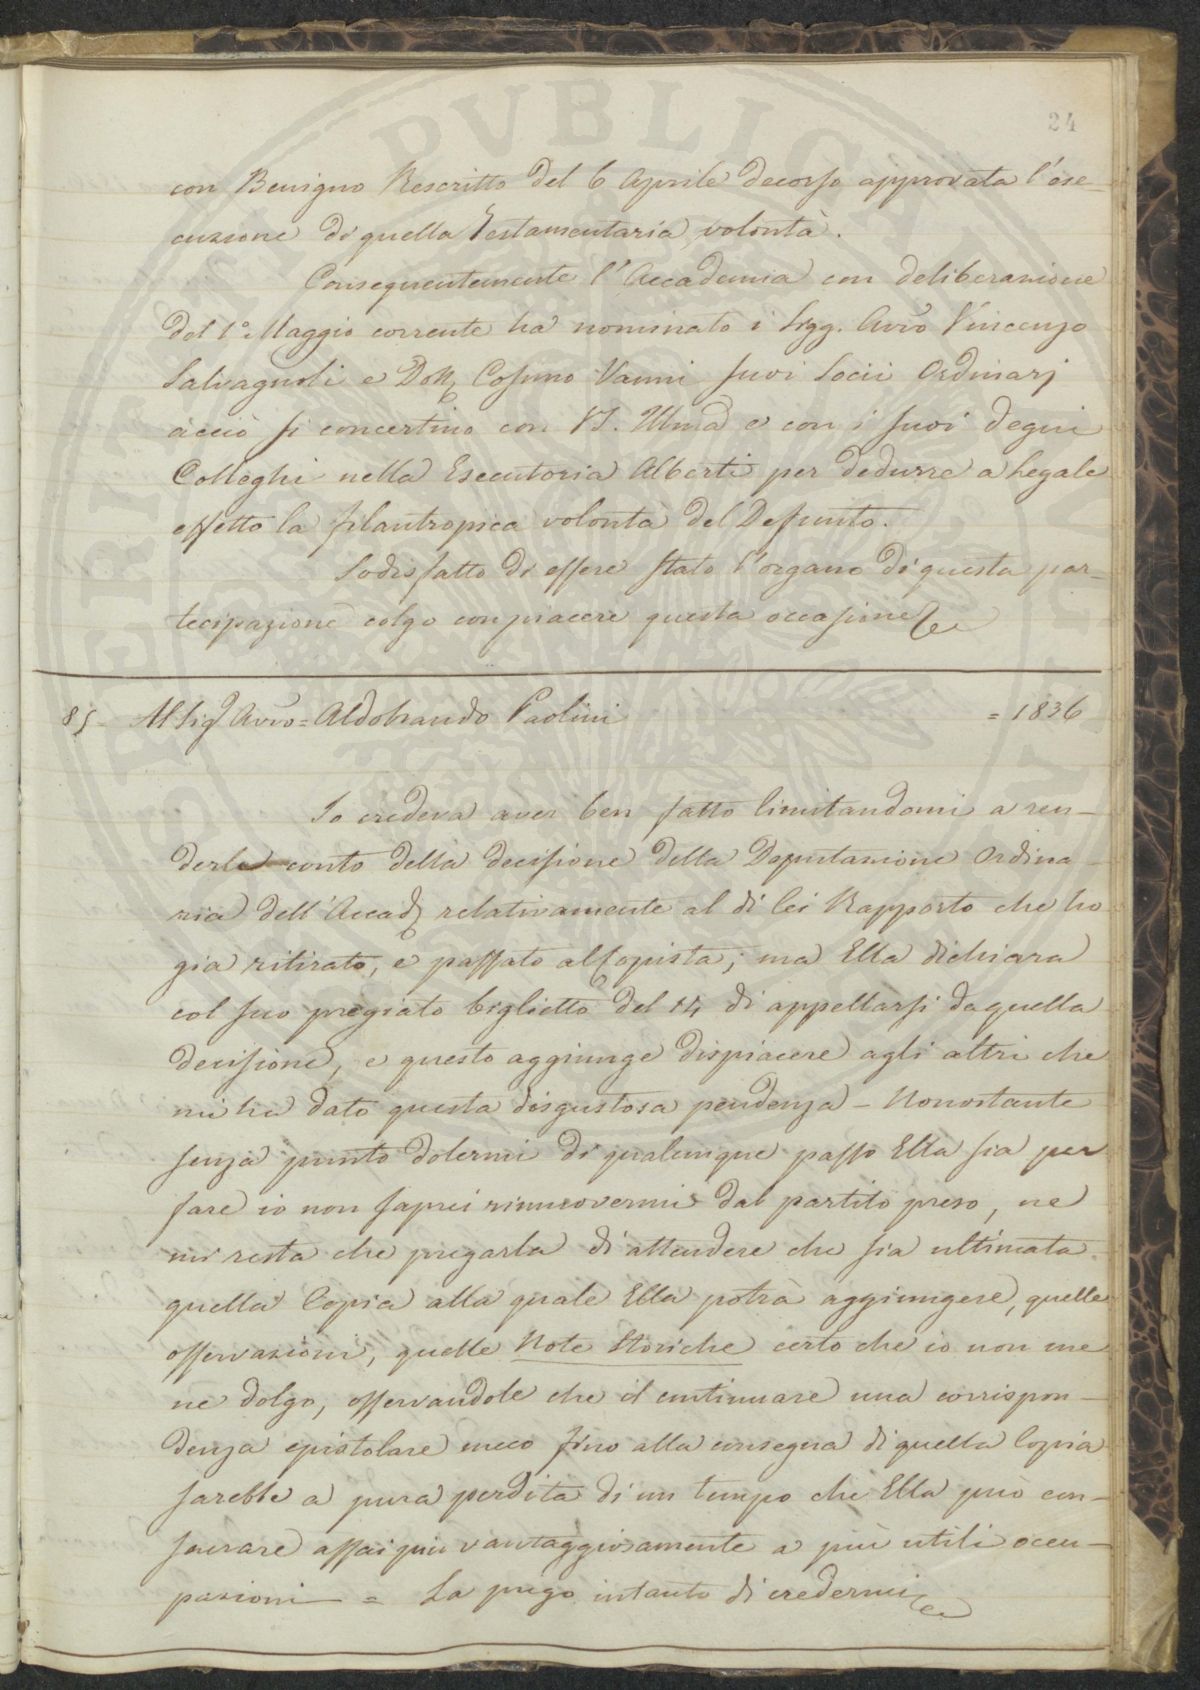 24
con Benigno Rescritto del 6 Aprile decorso approvata l'ese-
cuzione di quella Testamentaria volontà.
Conseguentemente l'Accademia con deliberazione
del 1° Maggio corrente ha nominato i Sigg. Avvo Vincenzo
Salvagnoli e Dott. Cosimo Vanni suoi Socii Ordinarj
acciò si concertino con VS. Illma e con i suoi degni
Colleghi nella Esecutoria Alberti per dedurre a legale
effetto la filantropica volontà del Defunto.
Sodisfatto di essere stato l'organo di questa par-
tecipazione colgo con piacere questa occasione
85- Al Sigr Avvo= Aldobrando Paolini = 1836
Io credeva aver ben fatto limitandomi a ren-
derle conto della decisione della Deputazione Ordina
ria dell'Accad. relativamente al di lei Rapporto che ho
gia ritirato, e passato al Copista; ma Ella dichiara
col suo pregiato biglietto del 14 di appellarsi da quella
decisione, e questo aggiunge dispiacere agli altri che
mi ha dato questa disgustosa pendenza - Nonostante
senza punto dolermi di qualunque passo Ella sia per
fare io non saprei rimuovermi dal partito preso, ne
mi resta che pregarla di attendere che sia ultimata
quella Copia alla quale Ella potrà aggiungere, quelle
osservazioni, quelle Note Storiche certo che io non me
ne dolgo, osservandole che il continuare una corrispon-
denza epistolare meco fino alla consegna di quella Copia
sarebbe a pura perdita di un tempo che Ella può con-
sacrare assai più vantaggiosamente a più utili occu-
pazioni = La prego intanto di credermi